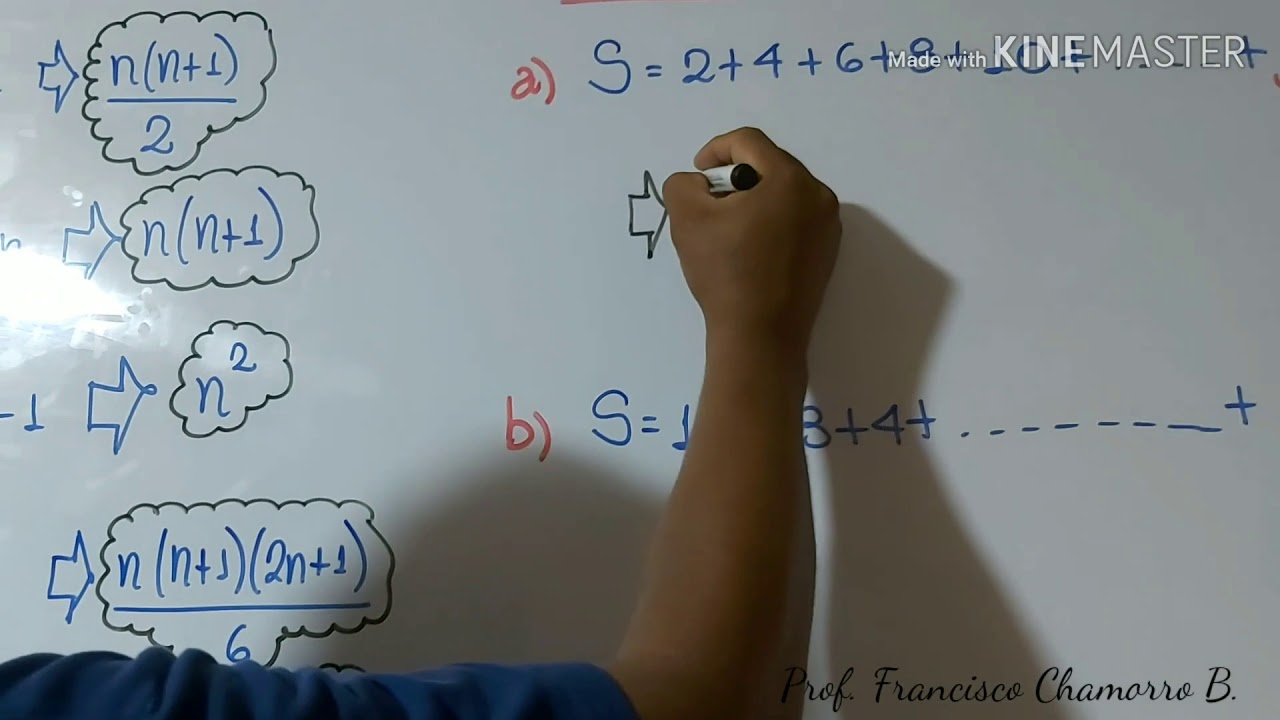 n(n+1)
2
n(n+1)
n
-1
n²
n(n+1)(2n+1)
6
a) S = 2+4+6+8+10+ . . - - +
Made with KINEMASTER
b) S = 1 3+4+ . - - - - - - - +
Prof. Francisco Chamorro B.